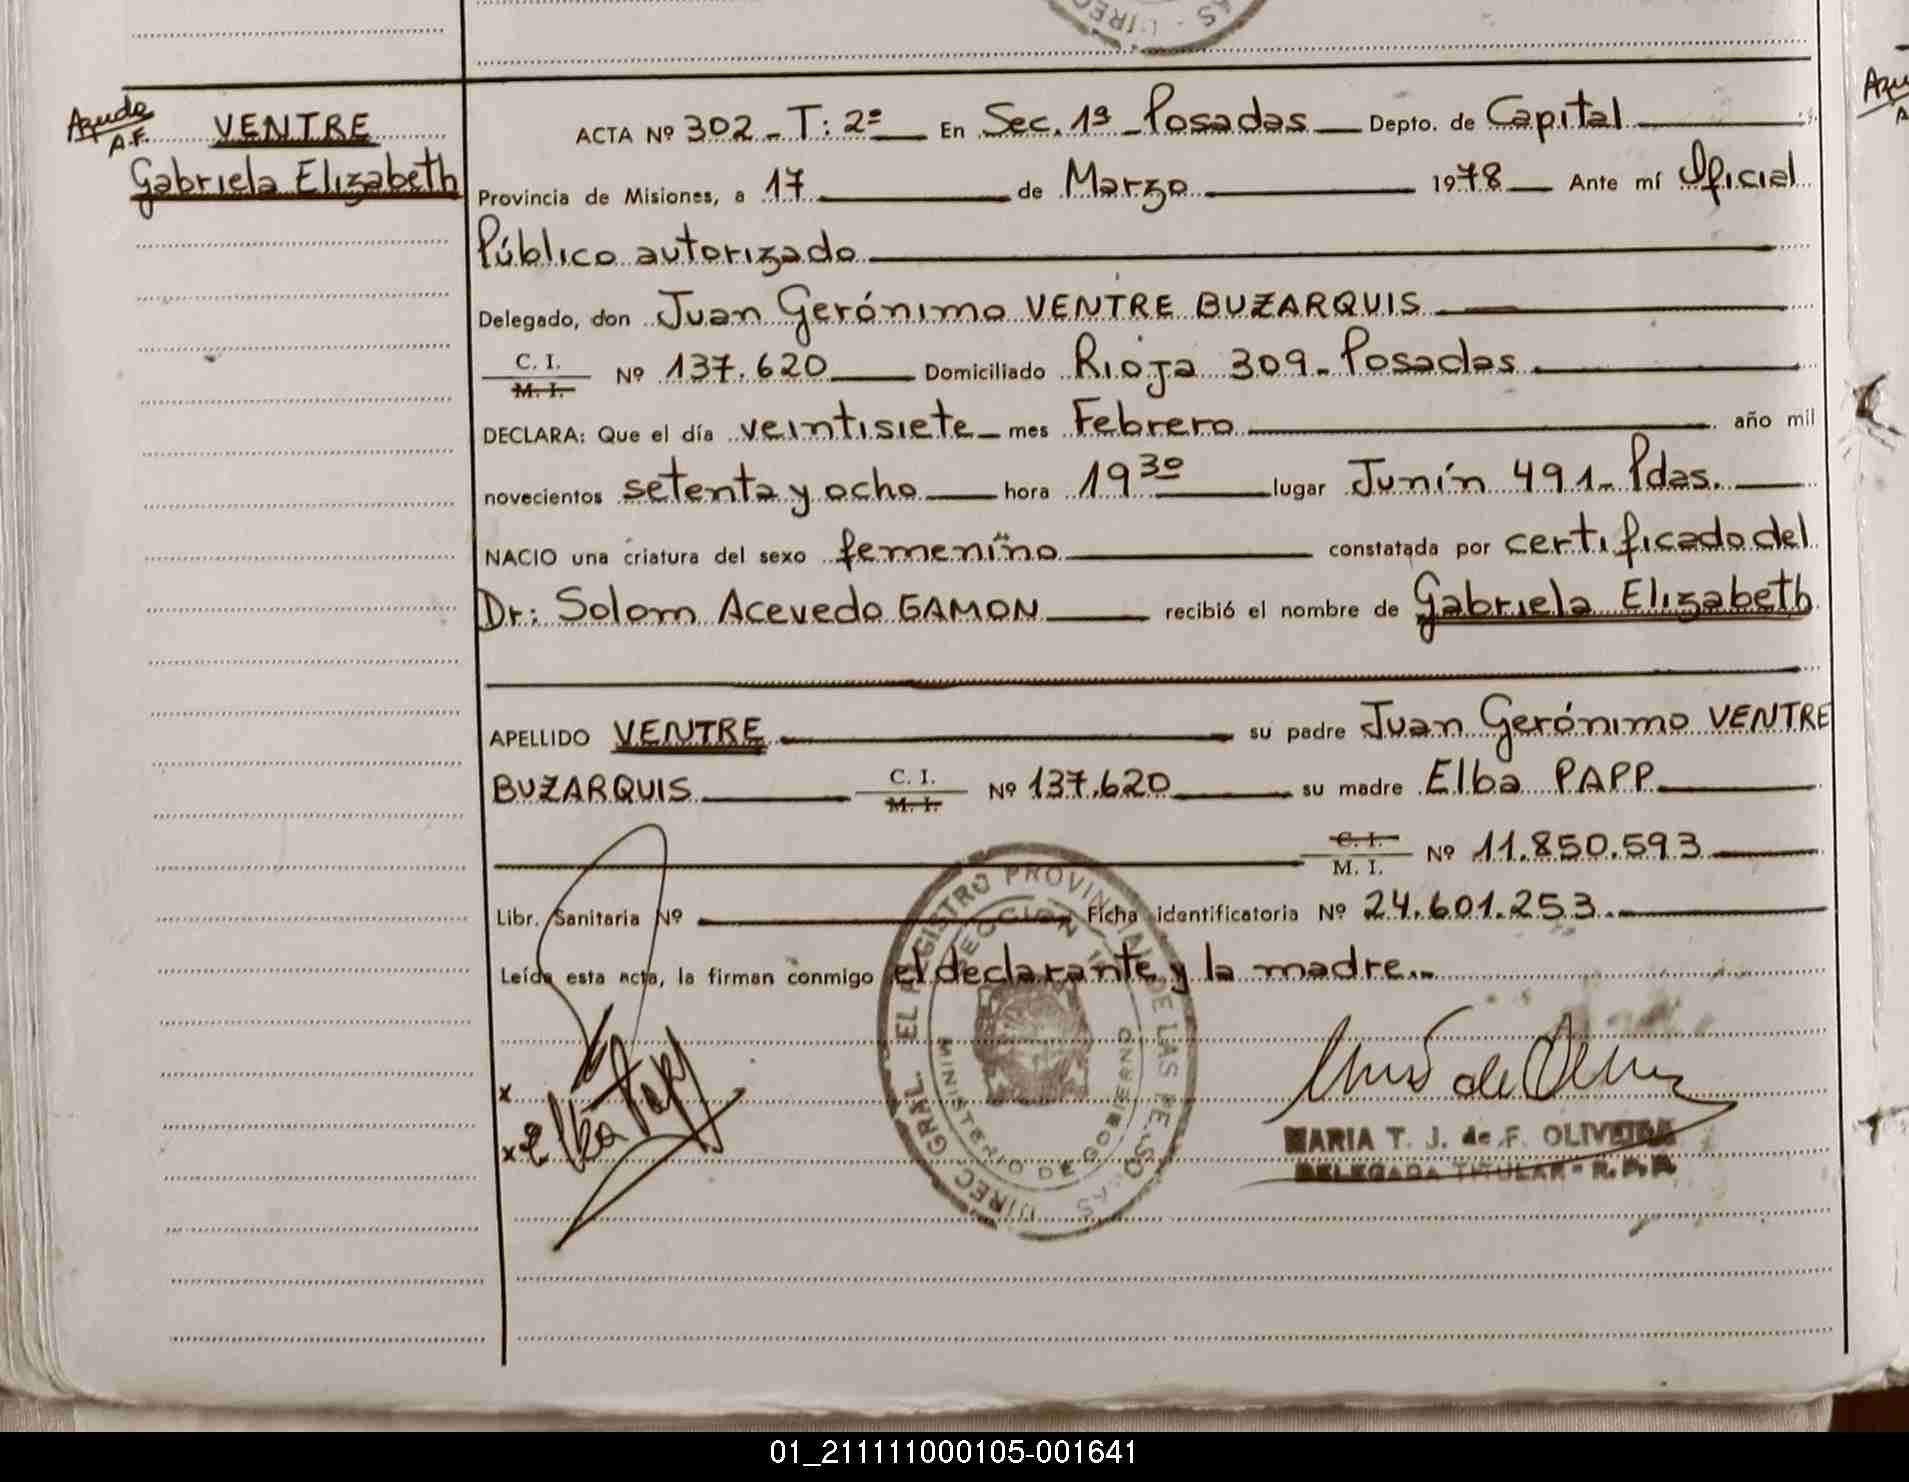 Ayudo
A.F.
VENTRE
Gabriela Elizabeth
ACTA Nº 302 - T: 2º En Sec. 1ª Posadas Depto. de Capital
Provincia de Misiones, a 17 de Marzo 1978 Ante mí Oficial
Público autorizado
Delegado, don Juan Gerónimo VENTRE BUZARQUIS
C. I.
M. I.
Nº 137.620 Domiciliado Rioja 309 - Posadas
DECLARA: Que el día veintisiete mes Febrero año mil
novecientos setenta y ocho hora 19 30 lugar Junín 491 - Pdas.
NACIO una criatura del sexo femenino constatada por certificado del
Dr: Solom Acevedo GAMON recibió el nombre de Gabriela Elizabeth
APELLIDO VENTRE su padre Juan Gerónimo VENTRE
BUZARQUIS C. I. M. I. Nº 137.620 su madre Elba PAPP
C. I. M. I. Nº 11.850.593
Libr. Sanitaria Nº Ficha identificatoria Nº 24.601.253
Leída esta acta, la firman conmigo el declarante y la madre.
x
x Elba Papp
DIREC. GRAL. EL REGISTRO PROVINCIAL DE LAS PERSONAS
MINISTERIO DE GOBIERNO
MARIA T. J. de F. OLIVEIRA
DELEGADA TITULAR - R. P. P.
01_211111000105-001641